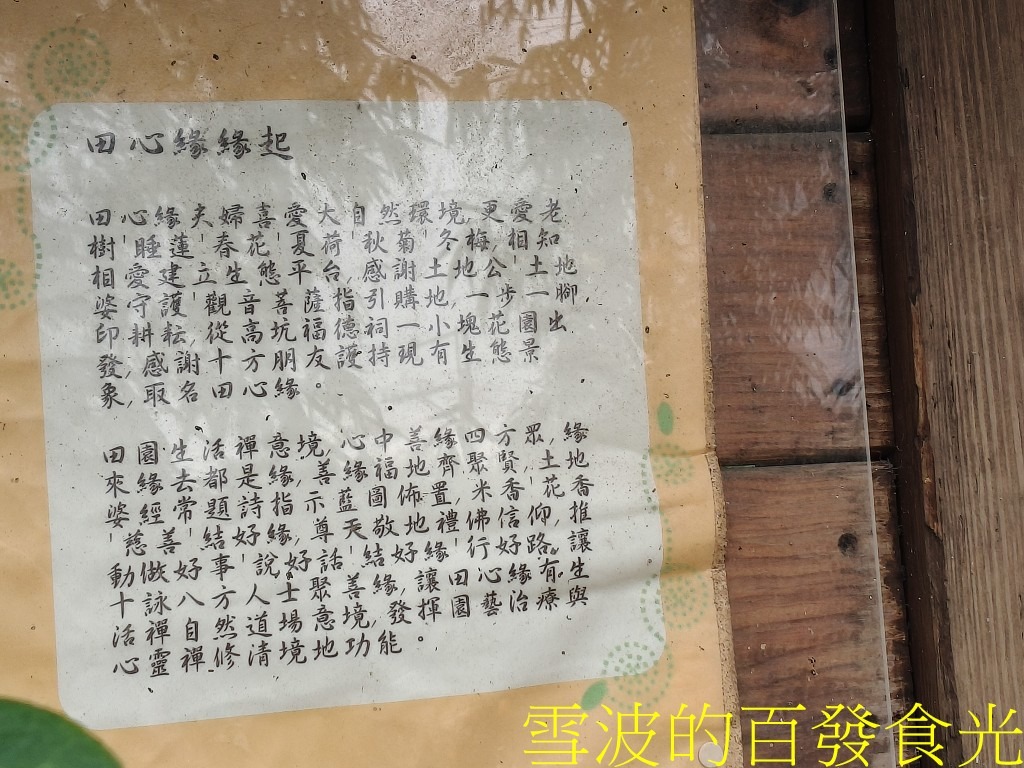 田心緣緣起
田心緣夫婦喜愛大自然環境,更愛老
樹、睡蓮、春花、夏荷、秋菊、冬梅,相知
相愛建立生態平台,感謝土地公、土地
婆守護、觀音菩薩指引購地,一步一腳,
印耕耘,從高坑福德祠一小塊花園出
發,感謝十方朋友護持現有生態景
象,取名田心緣。
田園生活禪意境,心中善緣四方眾,緣
來緣去都是緣,善緣福地齊聚賢,土地
婆經常題詩指示藍圖佈置,米香花香
、慈善、結好緣,尊天敬地禮佛信仰,推
動做好事、說好話、結好緣、行好路。讓
十詠八方人士聚善緣,讓田心緣有生
活禪自然道場意境,發揮園藝治療與
心靈禪修清境地功能。
雪波的百發食光